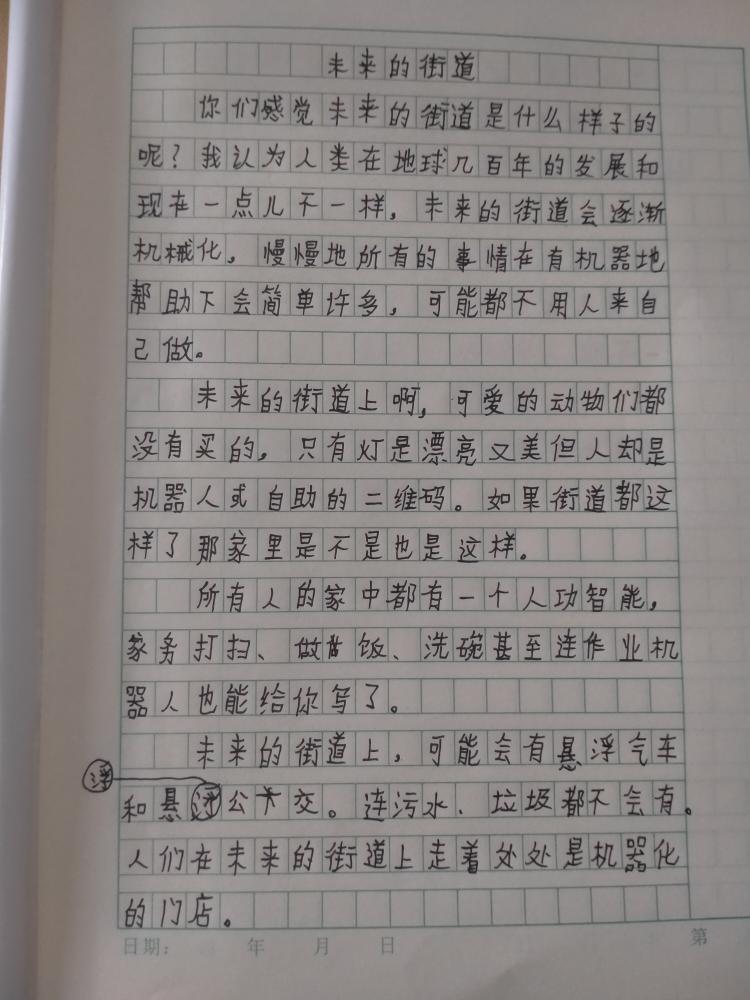 未来的街道
你们感觉未来的街道是什么样子的
呢？我认为人类在地球几百年的发展和
现在一点儿不一样，未来的街道会逐渐
机械化，慢慢地所有的事情在有机器地
帮助下会简单许多，可能都不用人来自
己做。
未来的街道上啊，可爱的动物们都
没有买的，只有灯是漂亮又美但人却是
机器人或自助的二维码。如果街道都这
样了那家里是不是也是这样。
所有人的家中都有一个人功智能，
家务打扫、做饭、洗碗甚至连作业机
器人也能给你写了。
未来的街道上，可能会有悬浮气车
和悬浮公交。连污水、垃圾都不会有。
人们在未来的街道上走着处处是机器化
的门店。
日期： 年 月 日 第